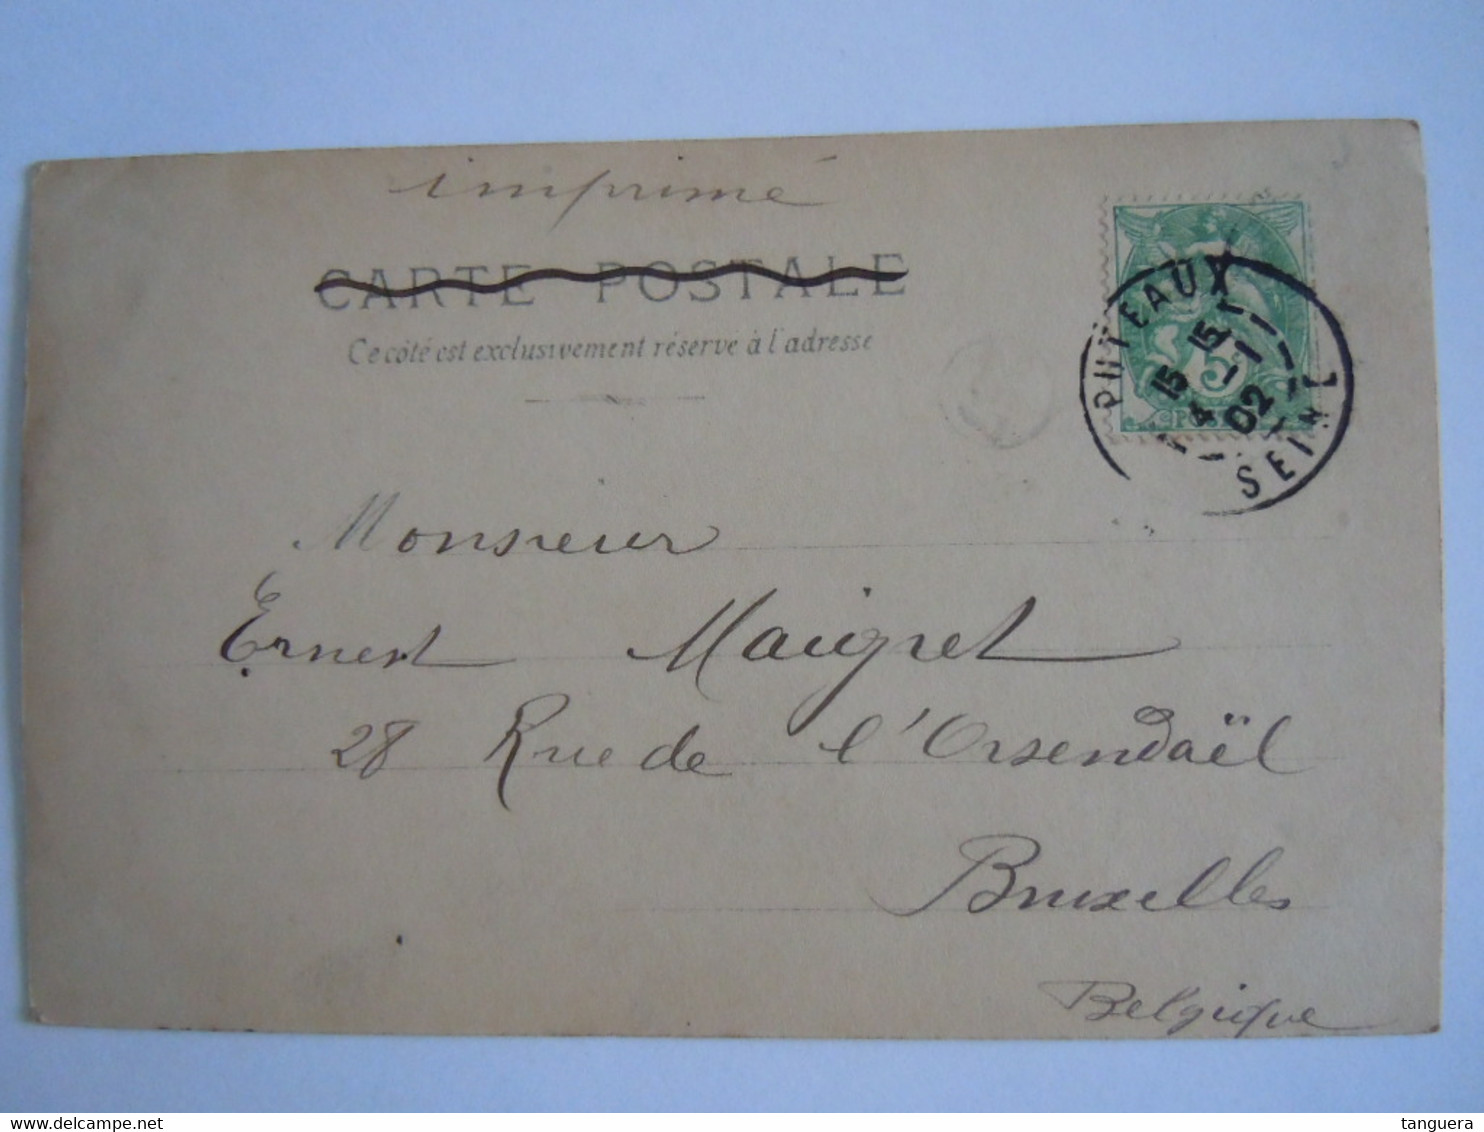 imprimé
CARTE POSTALE
Ce côté est exclusivement réservé à l'adresse
PUTEAUX
15 15
4 -1
02
SEINE
5
Monsieur
Ernest Maigret
28 Rue de l'Orsendaël
Bruxelles
Belgique
tanguera
delcampe.net